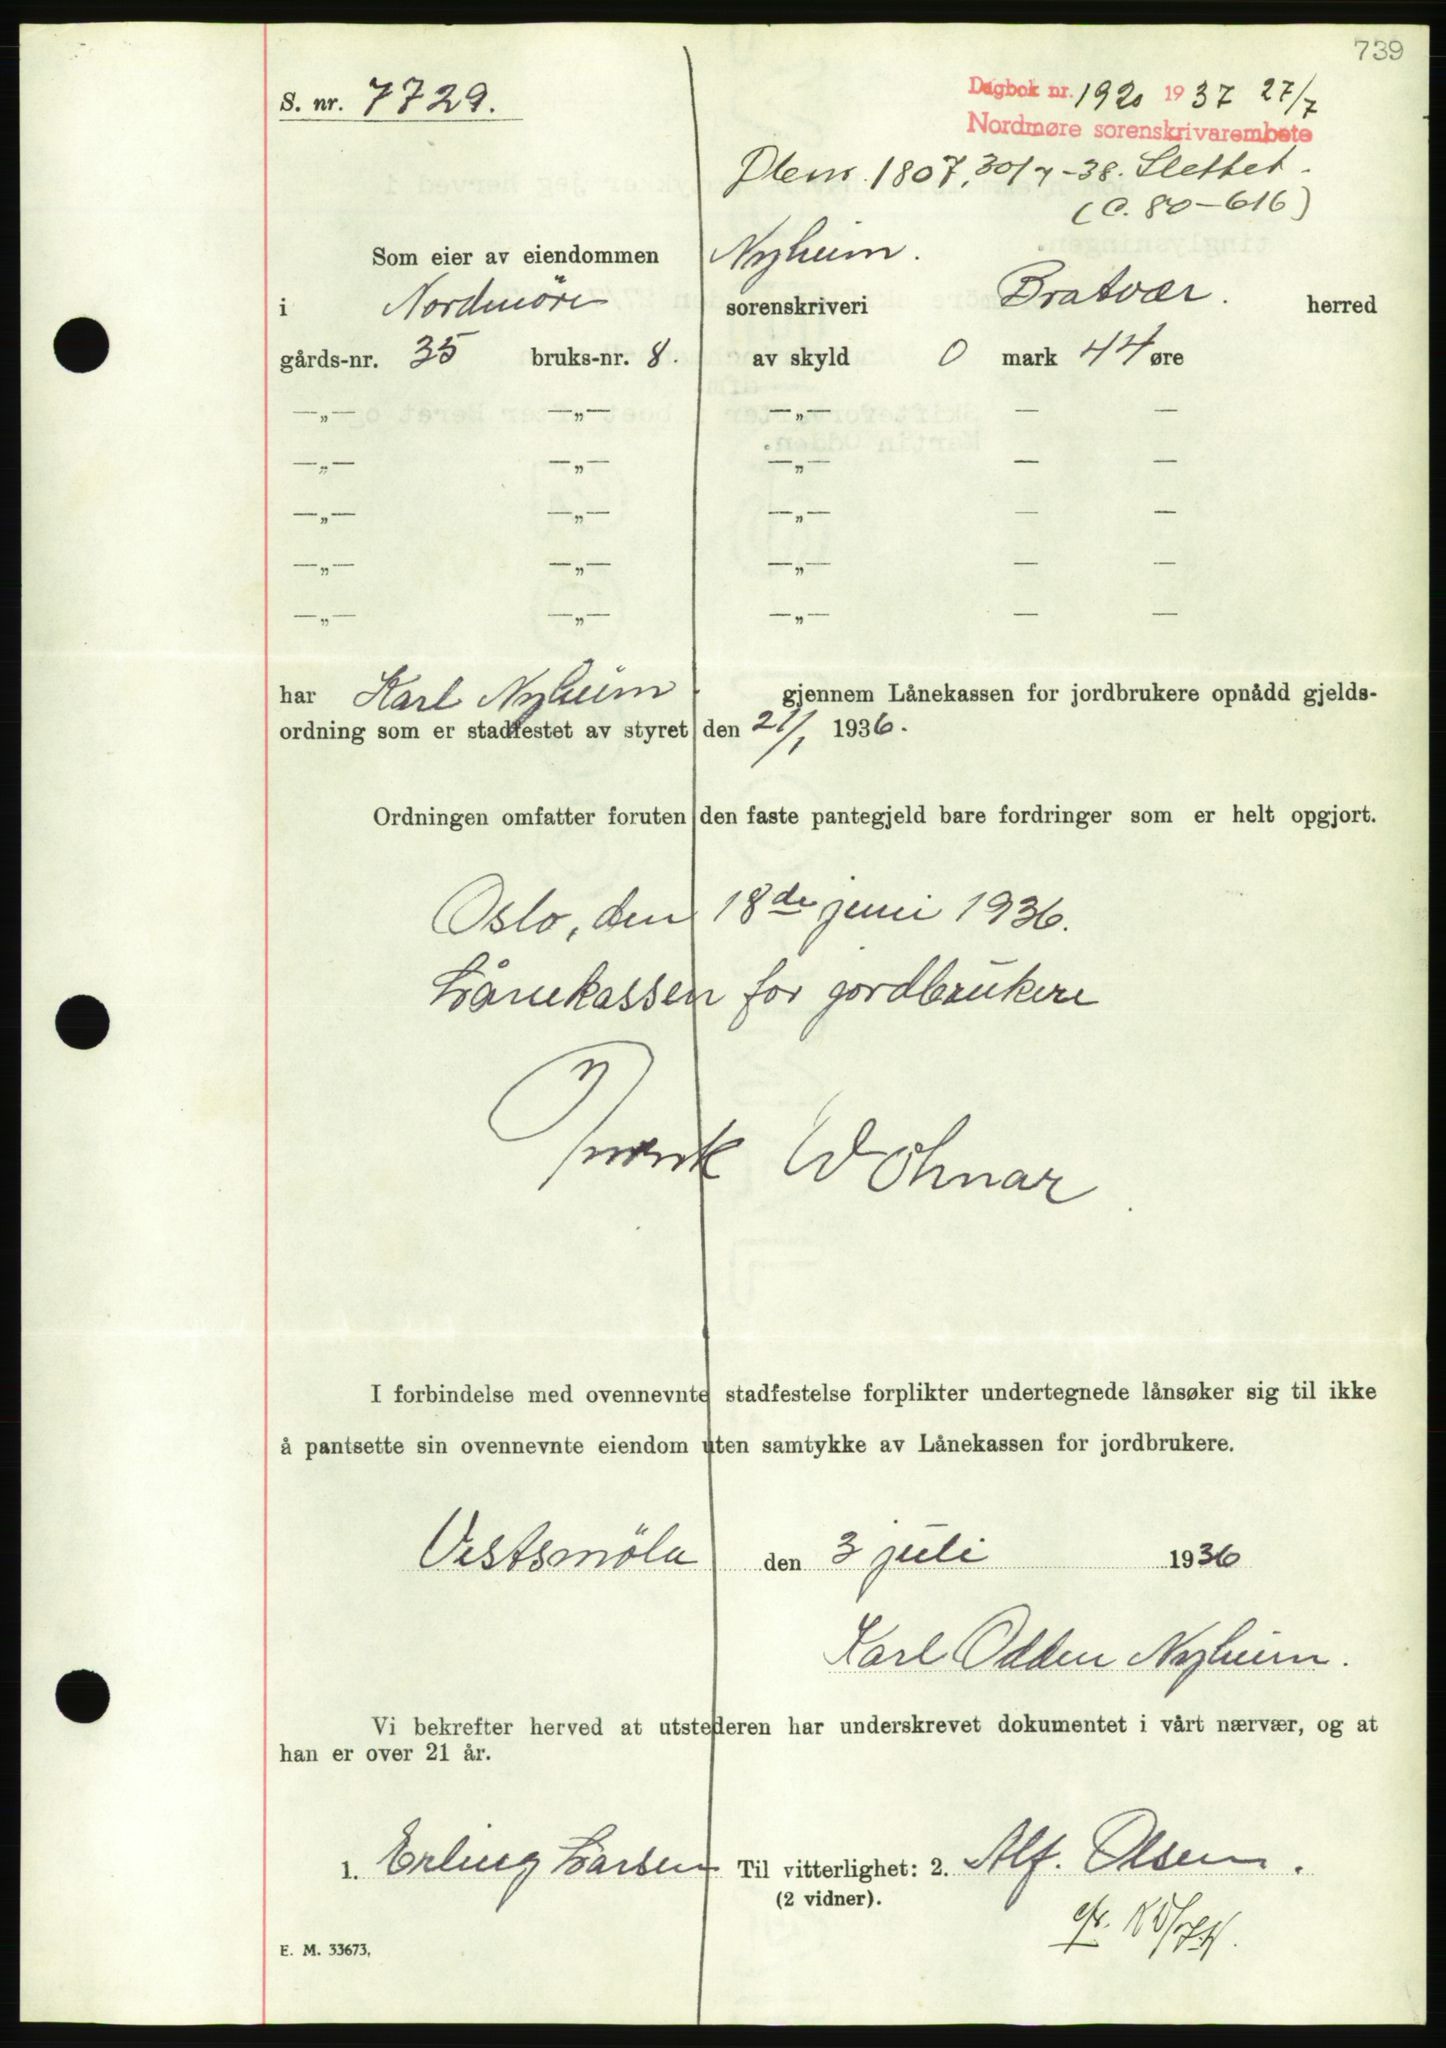 739
S. nr. 7729.
Dagbok nr. 1920 1937 27/7
Nordmøre sorenskrivarembete
1807, 30/7-38. Slettet.
(C. 80-616)
Som eier av eiendommen Nyheim.
i Nordmöre sorenskriveri Bratvær. herred
gårds-nr. 35 bruks-nr. 8. av skyld 0 mark 44 øre
—„— —„— —„— — —
—„— —„— —„— — —
—„— —„— —„— — —
—„— —„— —„— — —
—„— —„— —„— — —
har Karl Nyheim. gjennem Lånekassen for jordbrukere opnådd gjelds-
ordning som er stadfestet av styret den 21/1 1936.
Ordningen omfatter foruten den faste pantegjeld bare fordringer som er helt opgjort.
Oslo, den 18de juni 1936.
Lånekassen for jordbrukere
I forbindelse med ovennevnte stadfestelse forplikter undertegnede lånsøker sig til ikke
å pantsette sin ovennevnte eiendom uten samtykke av Lånekassen for jordbrukere.
Vestsmöla den 3 juli 1936
Karl Odden Nyheim.
Vi bekrefter herved at utstederen har underskrevet dokumentet i vårt nærvær, og at
han er over 21 år.
1. Erling Larsen Til vitterlighet: 2. Alf. Olsen.
(2 vidner).
E. M. 33673.